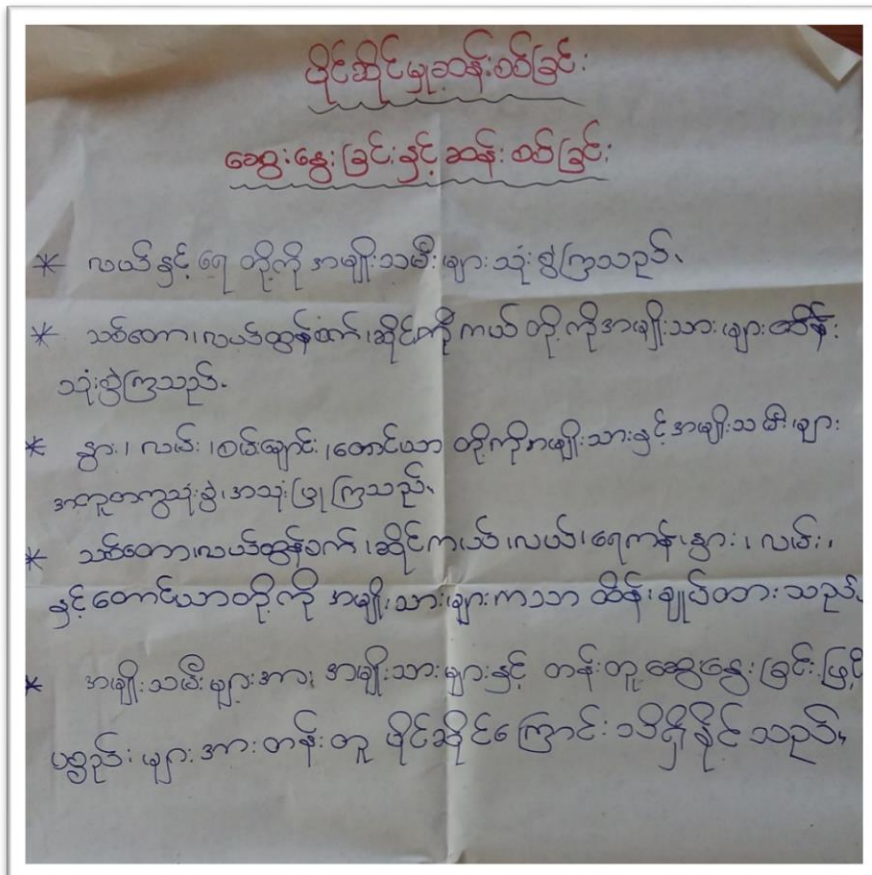 ပိုင်ဆိုင်မှုဆန်းစစ်ခြင်း
ဆွေးနွေးခြင်းနှင့် ဆန်းစစ်ခြင်း
* လယ်နှင့် ရေ တို့ကို အမျိုးသမီးများ သုံးစွဲကြသည်။
* သစ်တော၊ လယ်ထွန်စက်၊ ဆိုင်ကယ် တို့ကို အမျိုးသားများ
သုံးစွဲကြသည်။
* နွား၊ လမ်း၊ စမ်းချောင်း၊ တောင်ယာ တို့ကို အမျိုးသားနှင့် အမျိုးသမီးများ
အတူတကွသုံးစွဲ၊ အသုံးပြုကြသည်။
* သစ်တော၊ လယ်ထွန်စက်၊ ဆိုင်ကယ်၊ လယ်၊ ရေကန်၊ နွား၊ လမ်း၊
နှင့် တောင်ယာတို့ကို အမျိုးသားများကသာ ထိန်းချုပ်ထားသည်။
* အမျိုးသမီးများအား အမျိုးသားများနှင့် တန်းတူ ဆွေးနွေးခြင်းဖြင့်
ပစ္စည်းများအား တန်းတူ ပိုင်ဆိုင်ကြောင်း သိရှိနိုင်သည်။